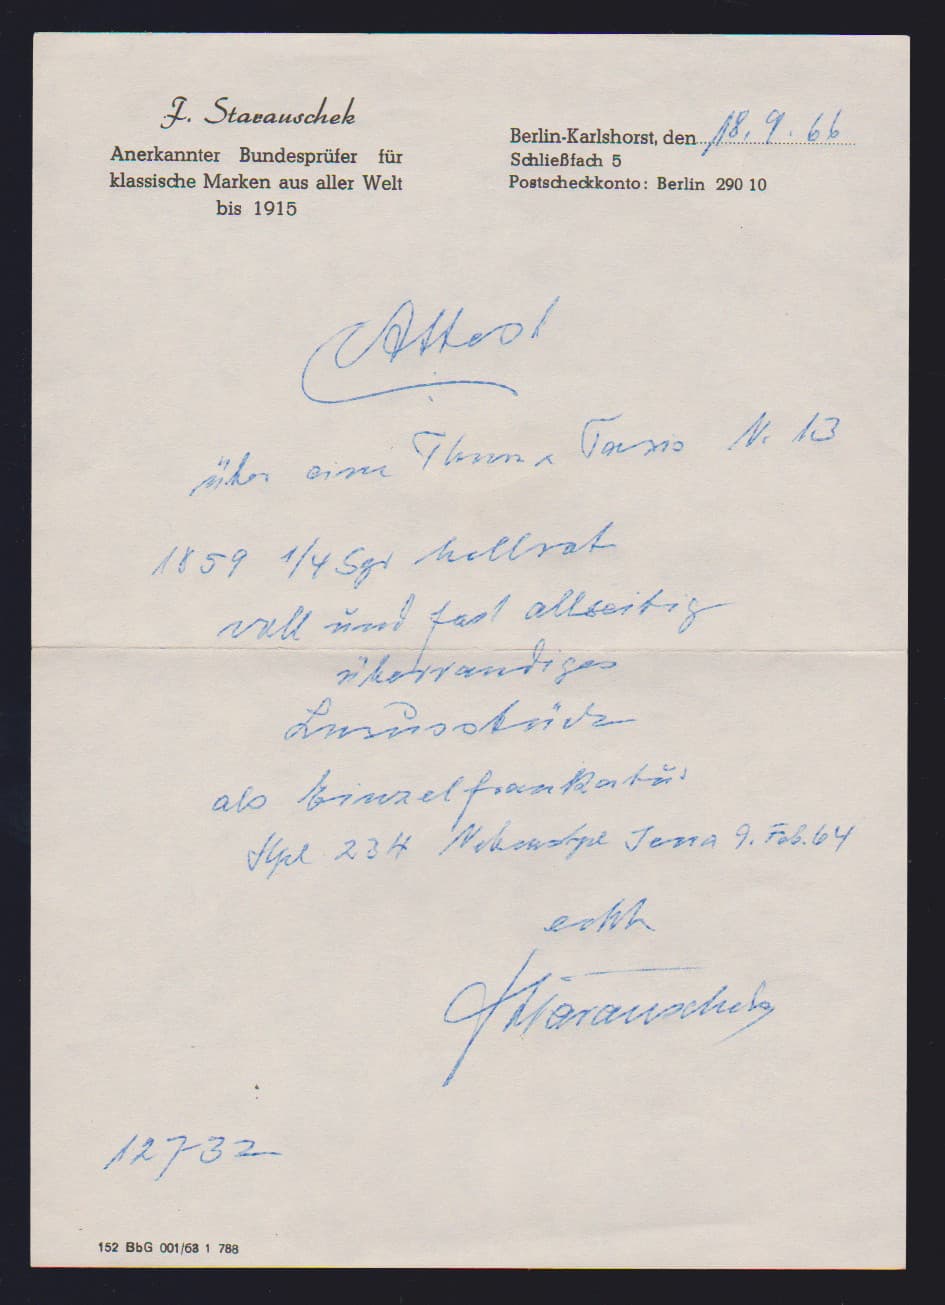 J. Starauschek
Anerkannter Bundesprüfer für
klassische Marken aus aller Welt
bis 1915
Berlin-Karlshorst, den 18. 9. 66
Schließfach 5
Postscheckkonto: Berlin 290 10
Attest
über eine Thurn & Taxis N. 13
1859 1/4 Sgr hellrot
voll und fast allseitig
überrandiges
Luxusstück
als Einzelfrankatur
Stpl 234 Nebenstpl Jena 9. Feb. 64
echt
Starauschek
12732
152 BbG 001/63 1 788